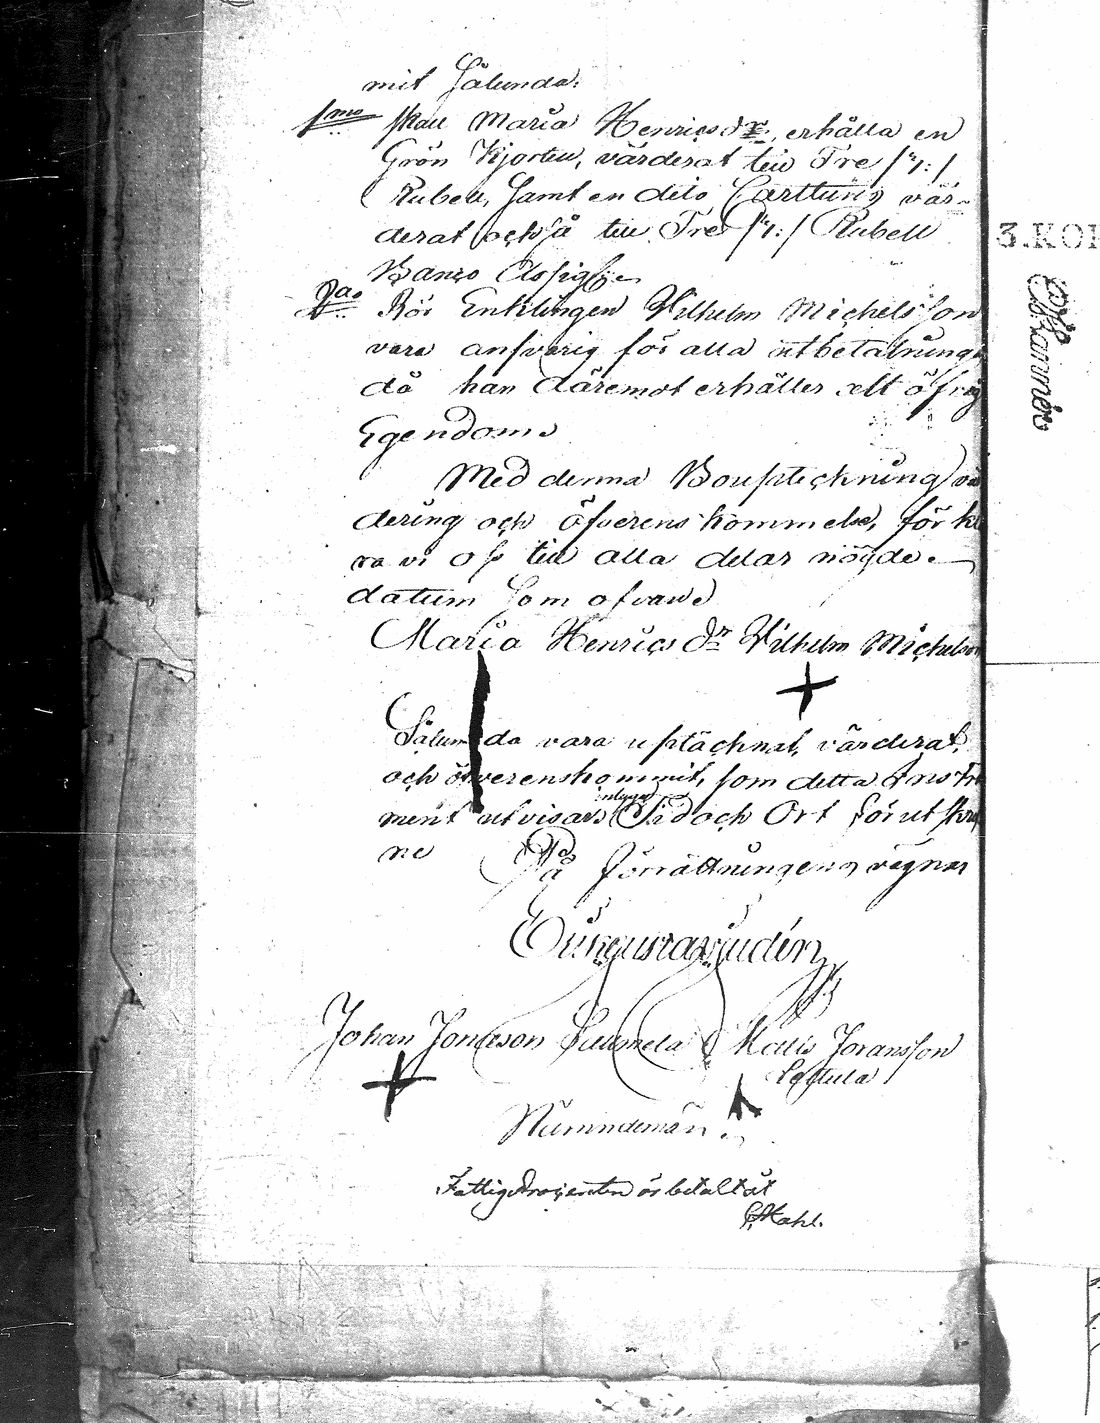 mit Sålunda:
1mo skall Maria Henricsdr. erhålla en
Grön Kjortell, värderat till Tre /3:/
Rubell, samt en dito Carttuns vär-
derat också till Tre /3:/ Rubell
Banco Assign:
2do Bör Enklingen Vilhelm Michelsson
vara ansvarig för alla utbetalning
då han däremot erhåller alt öfrig
Egendom.
Med denna Boupteckning vä
dering och öfverenskommelse, förkl
ra vi oss till alla delar nögde.
datum som ofvan
Maria Henricsdr Vilhelm Michelsson
Sålunda vara uptäcknat, värderat,
och öfverenskommit, som detta Instru
ment utvisar Tid och Ort förutskre
ne På förrättningens vägnar
Johan Jonasson Matts Joransson
Nämndemän.
Fattig Procenten är betalt
3.KO